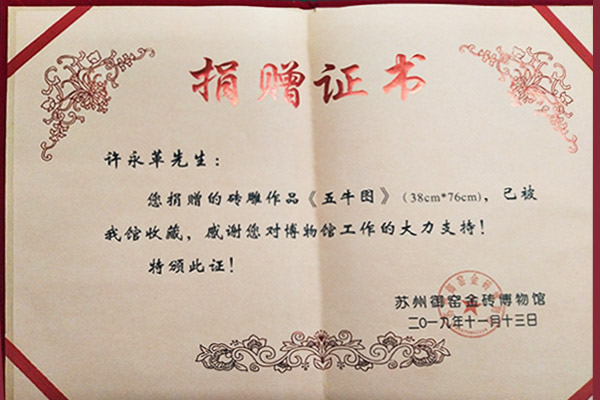 捐赠证书
许永革先生：
您捐赠的砖雕作品《五牛图》（38cm*76cm），已被
我馆收藏，感谢您对博物馆工作的大力支持！
特颁此证！
苏州御窑金砖博物馆
二〇一九年十一月十三日